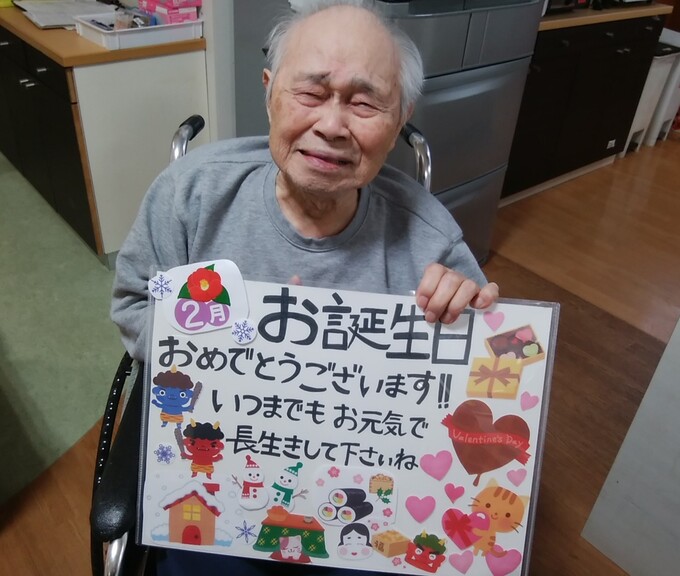 2月
お誕生日
おめでとうございます!!
いつまでも お元気で
長生きして下さいね
Valentine's Day
福